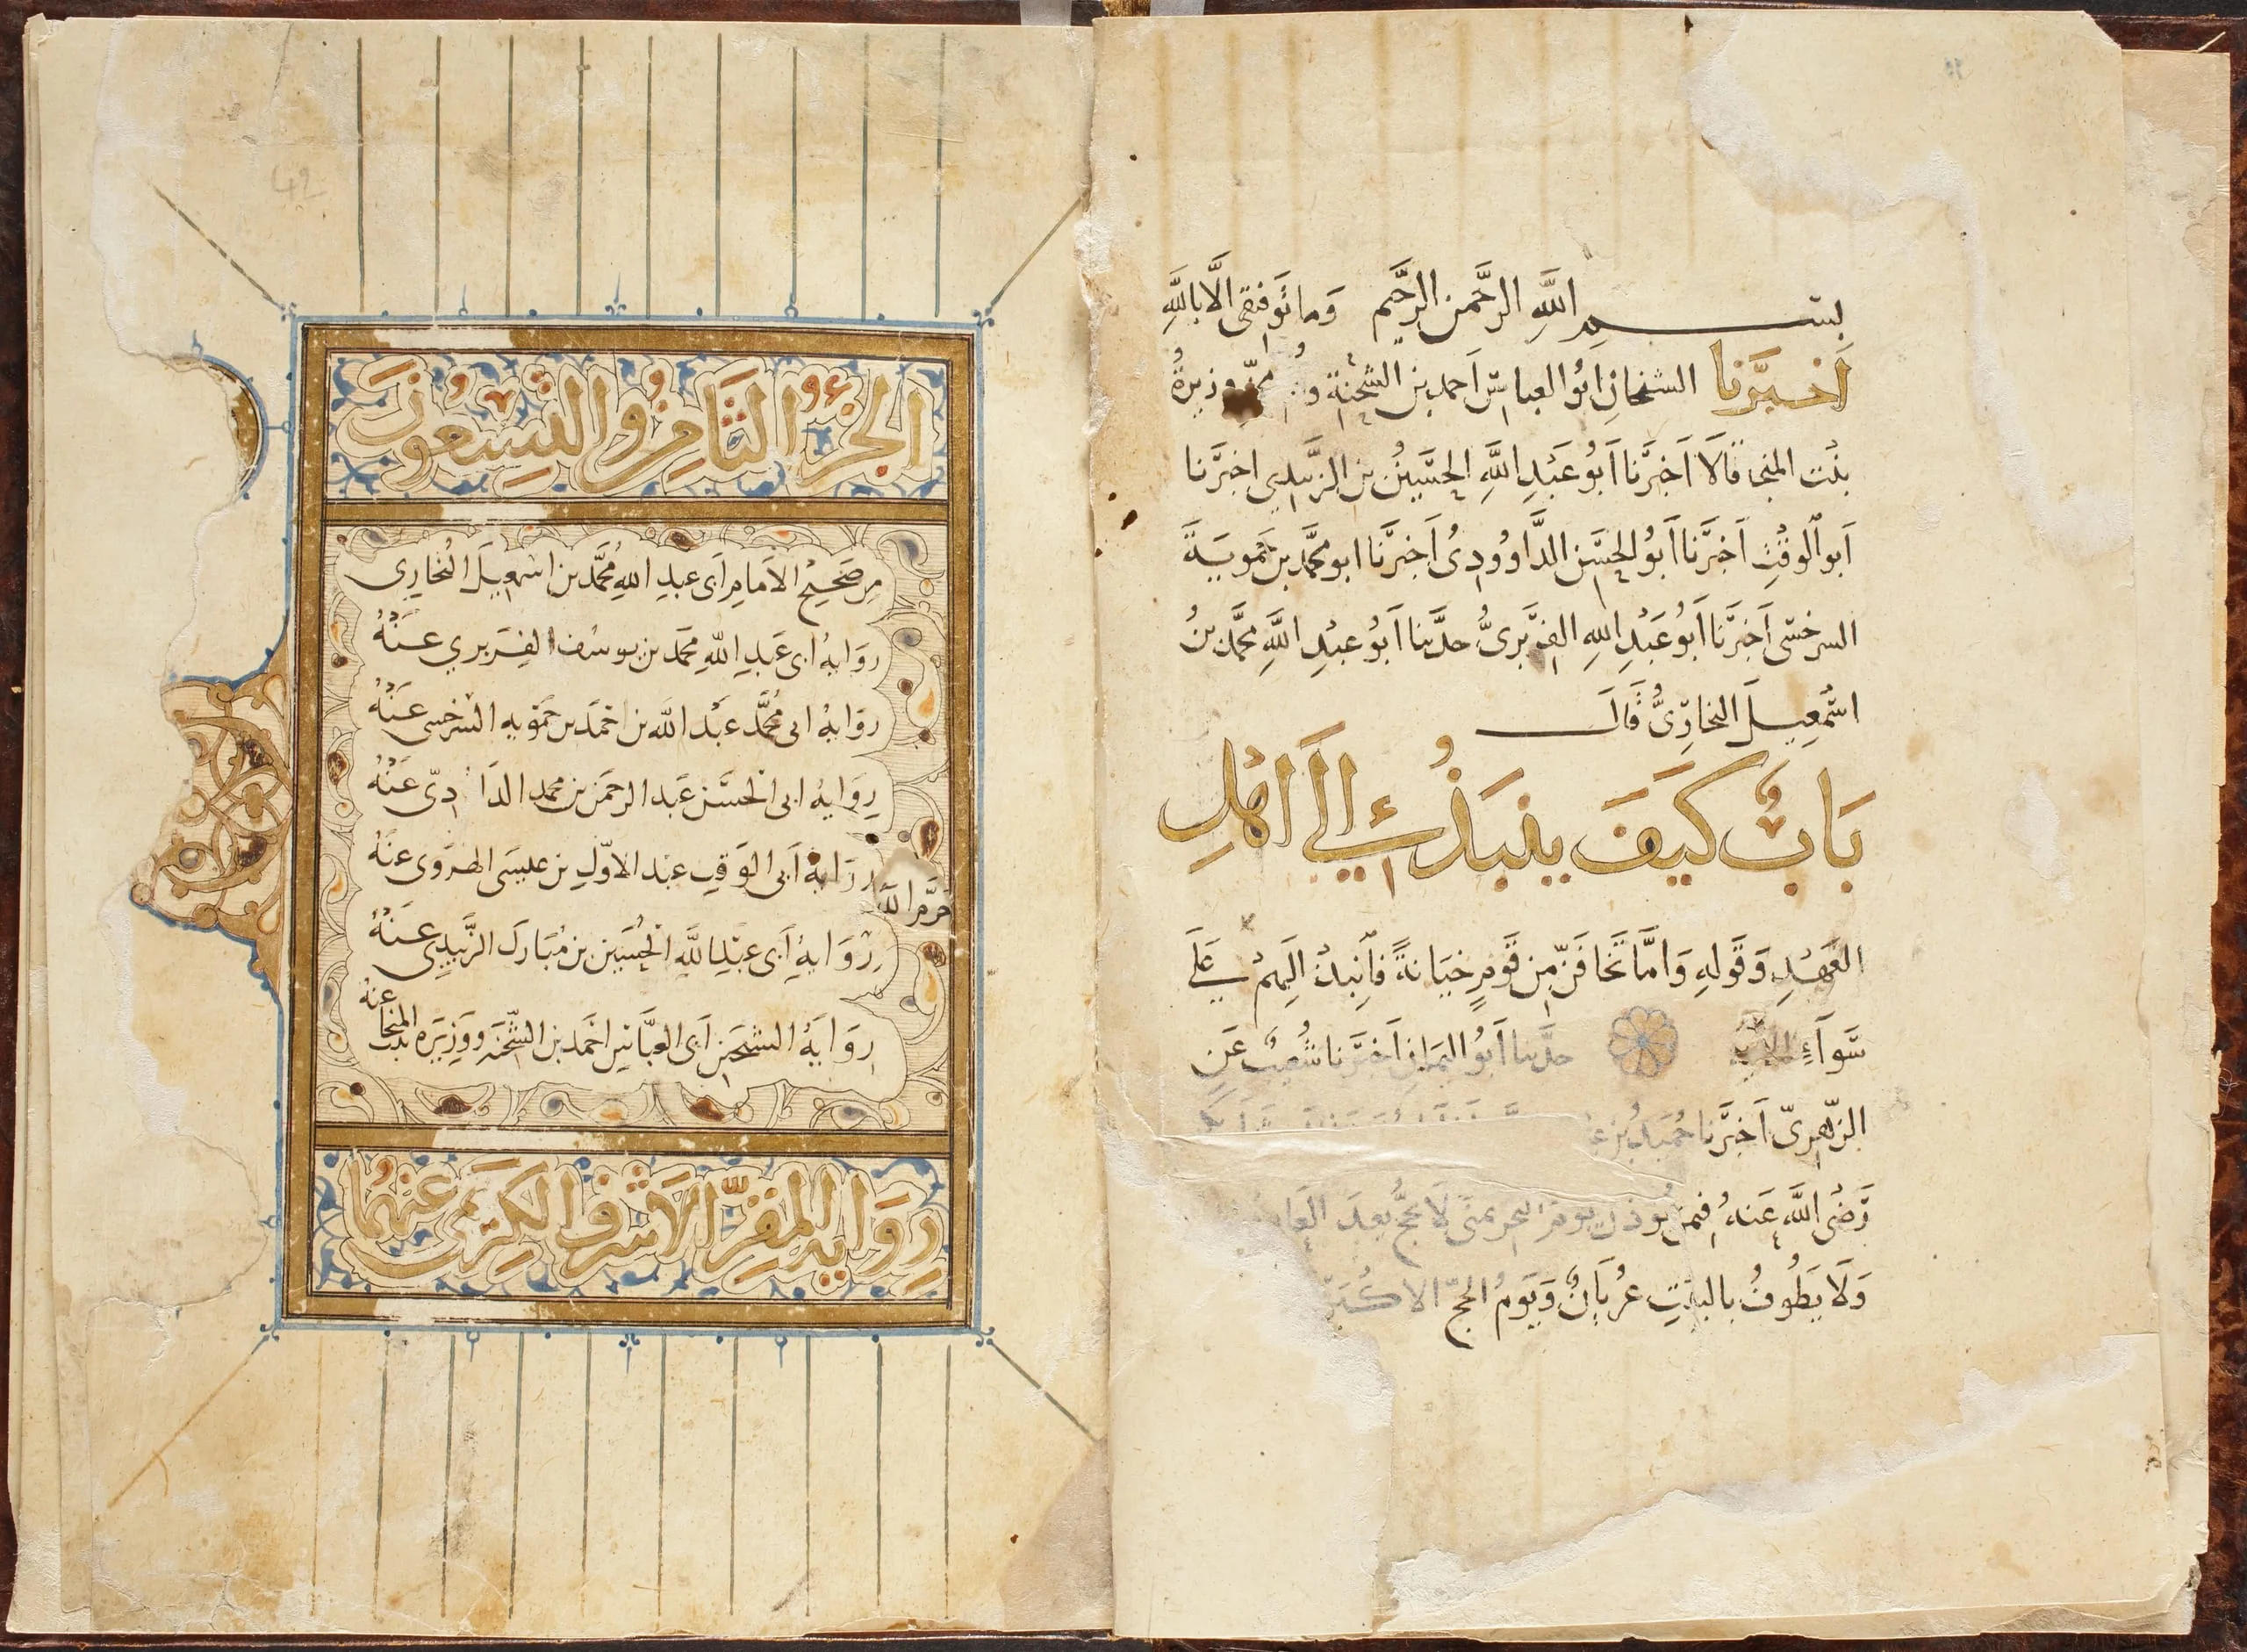 بسم الله الرحمن الرحيم وما توفيقي الا بالله
أخبرنا الشيخان ابو العباس احمد بن الشحنة و وزيرة
بنت المنجا قالا أخبرنا أبو عبد الله الحسين بن الزبيدي اخبرنا
أبو الوقت أخبرنا أبو الحسن الداوودي أخبرنا ابو محمد بن حمويه
السرخسي أخبرنا أبو عبد الله الفربري حدثنا أبو عبد الله محمد بن
اسمعيل البخاري قال
باب كيف ينبذ إلى اهل
العهد وقوله واما تخافن من قوم خيانة فانبذ اليهم على
سوآء الآية حدثنا أبو اليمان أخبرنا شعيب عن
الزهري أخبرنا حميد بن
رضي الله عنه فيمن يوذن يوم النحر بمنى لا يحج بعد العام
ولا يطوف بالبيت عريان ويوم الحج الاكبر
الجزء الثامن والتسعون
من صحيح الامام أبي عبد الله محمد بن اسمعيل البخاري
رواية ابي عبد الله محمد بن يوسف الفربري عنه
رواية ابي محمد عبد الله بن احمد بن حمويه السرخسي عنه
رواية ابي الحسن عبد الرحمن بن محمد الدا دي عنه
رواية أبي الوقت عبد الاول بن عيسى الهروي عنه
رواية أبي عبد الله الحسين بن مبارك الزبيدي عنه
رواية الشيخين أبي العباس احمد بن الشحنة ووزيرة بنت المنجا عنه
رواية المقر الاشرف الكريمي عنهما